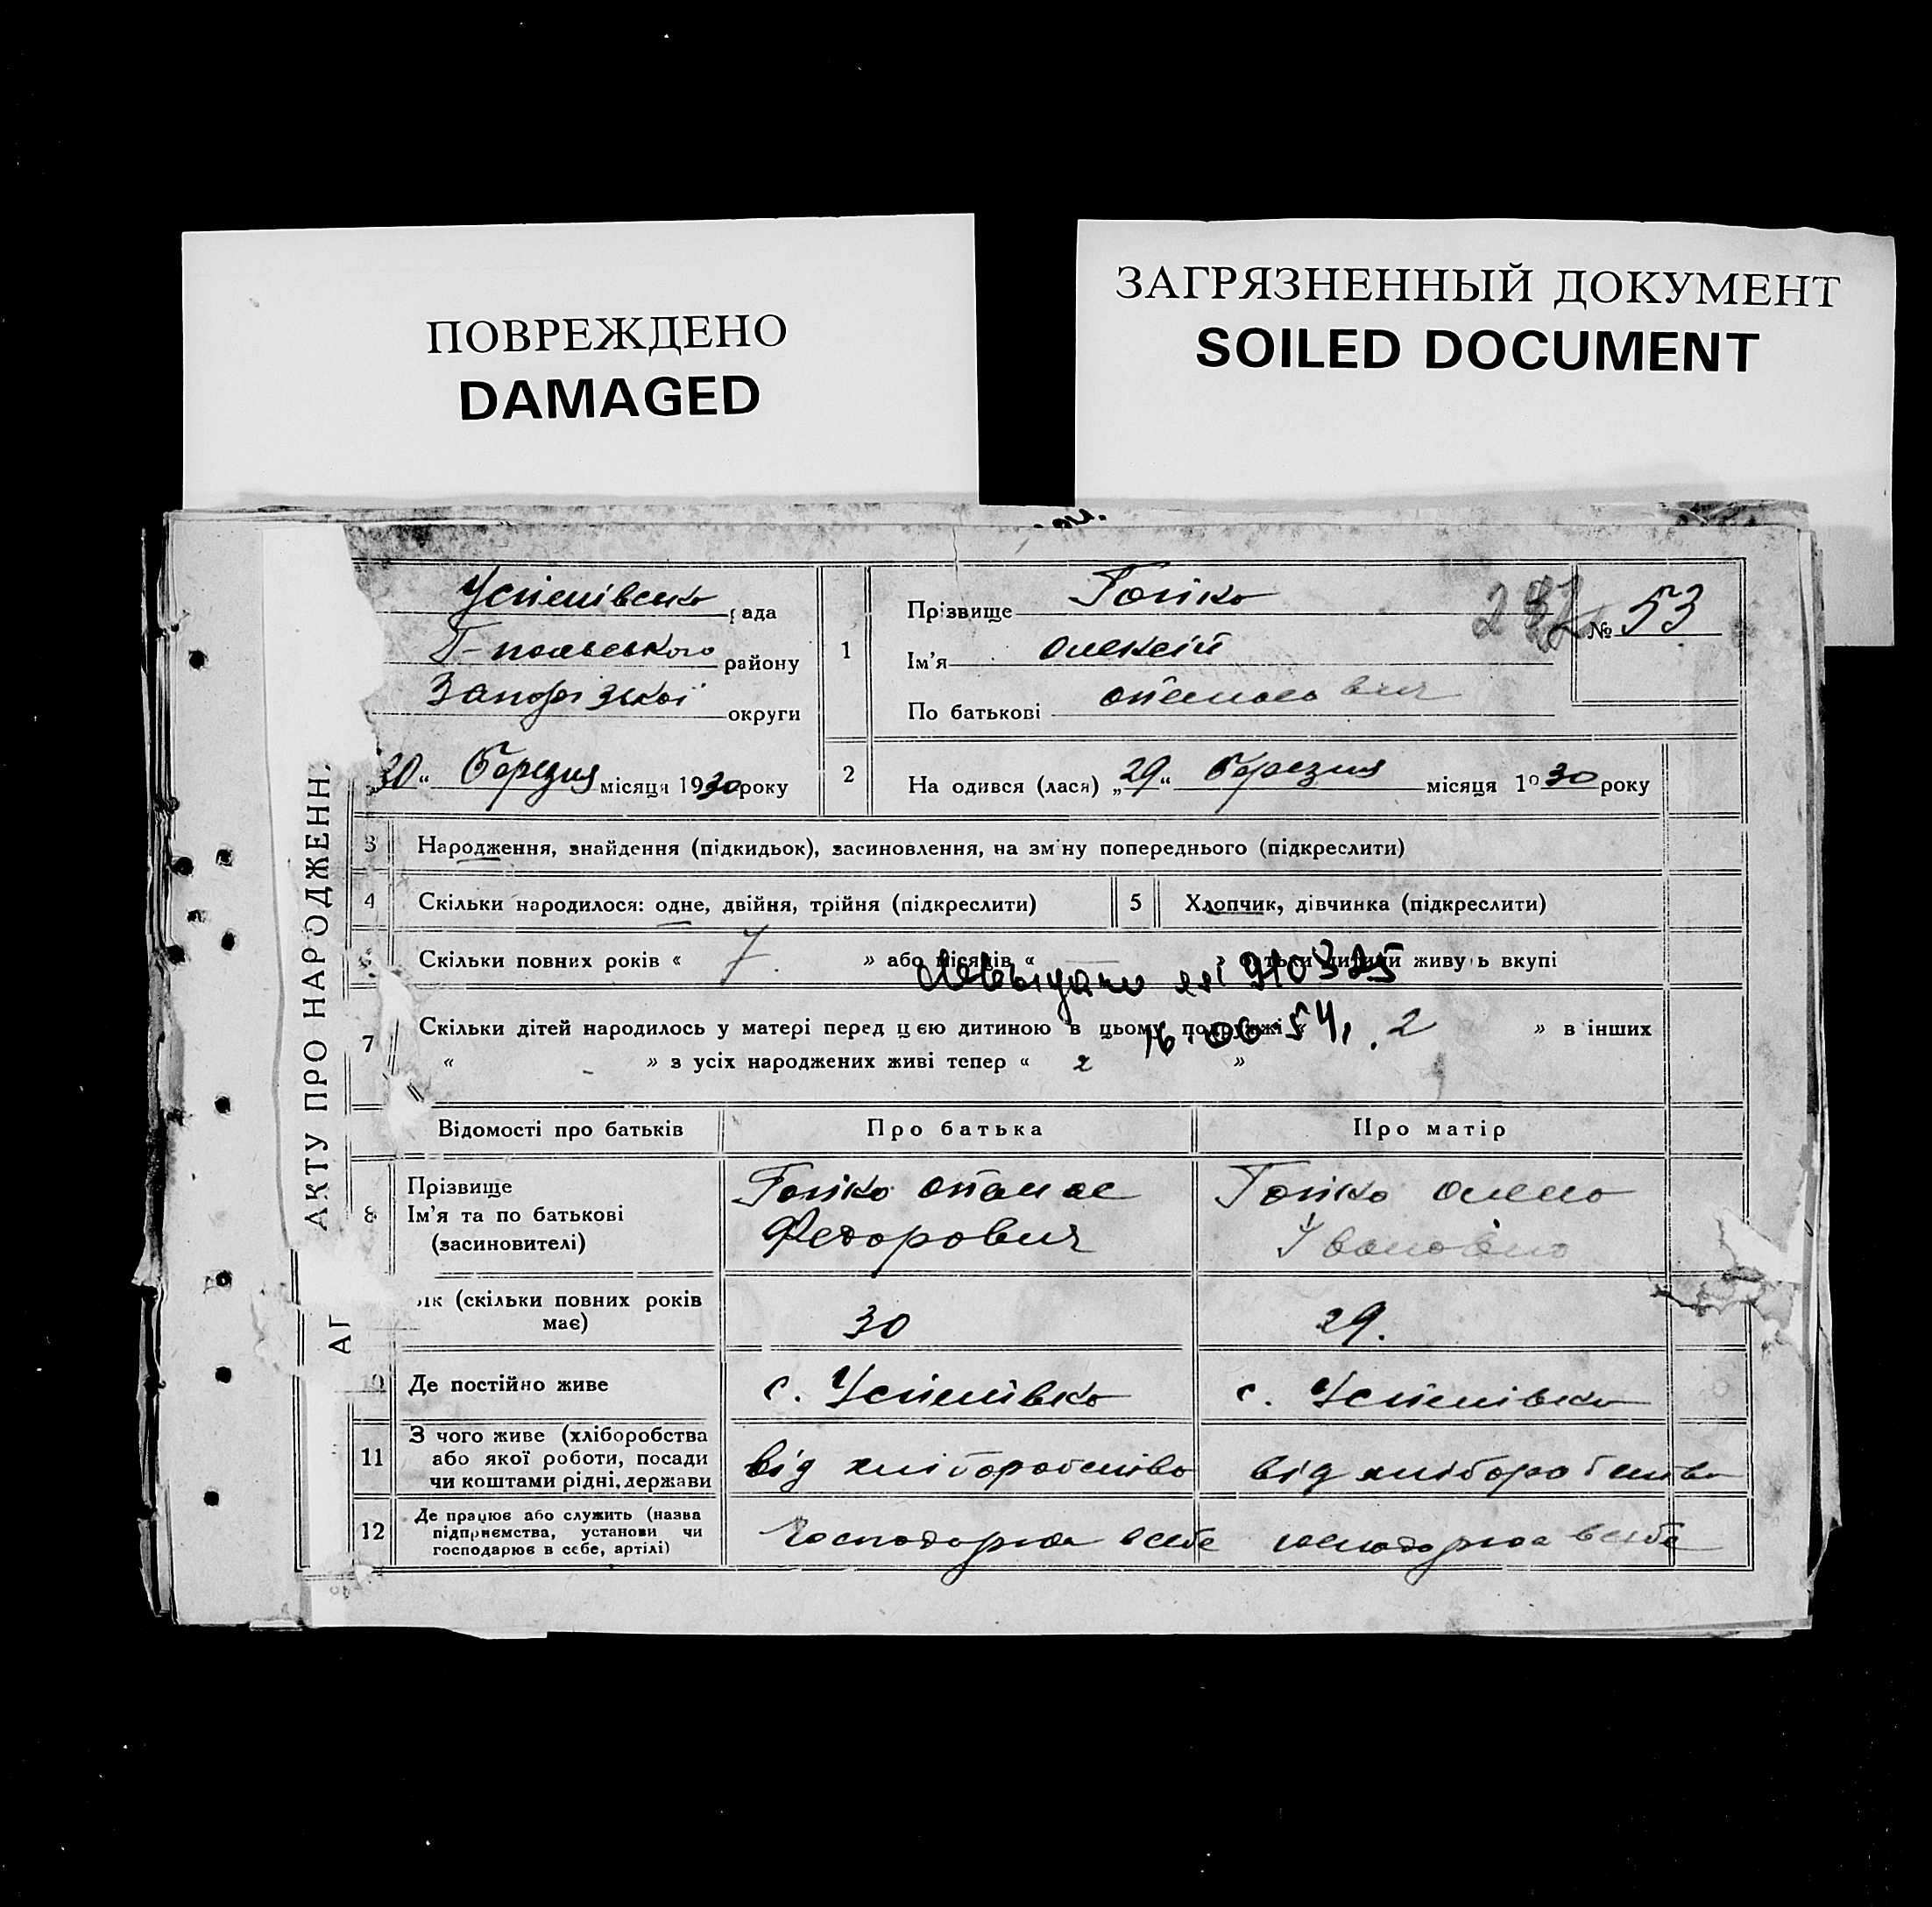 ПОВРЕЖДЕНО
DAMAGED
ЗАГРЯЗНЕННЫЙ ДОКУМЕНТ
SOILED DOCUMENT
АКТУ ПРО НАРОДЖЕНН
Успенівська рада
Г-польського району
Запорізької округи
30 " березня місяця 1930 року
1
Прізвище
Ім'я Олексій
По батькові Опанасович
№ 53
2
На одився (лася) „29" березня місяця 1930 року
3 Народження, знайдення (підкидьок), засиновлення, на зміну попереднього (підкреслити)
4 Скільки народилося: одне, двійня, трійня (підкреслити)
5 Хлопчик, дівчинка (підкреслити)
Скільки повних років « 7. » або місяців « » тьки дитини живуть вкупі
910325
7 Скільки дітей народилось у матері перед цією дитиною в цьому подружжі « 2 » в інших
« - » з усіх народжених живі тепер « 2 »
Відомості про батьків
Про батька
Про матір
8
Прізвище
Ім'я та по батькові
(засиновителі)
Опанас
Федорович
Олена
Івановна
ік (скільки повних років
має)
30
29.
10 Де постійно живе
с. Успенівка
с. Успенівка
11
З чого живе (хліборобства
або якої роботи, посади
чи коштами рідні, держави
від хліборобства
від хліборобства
12
Де працює або служить (назва
підприємства, установи чи
господарює в себе, артілі)
господарює в себе
господарює в себе